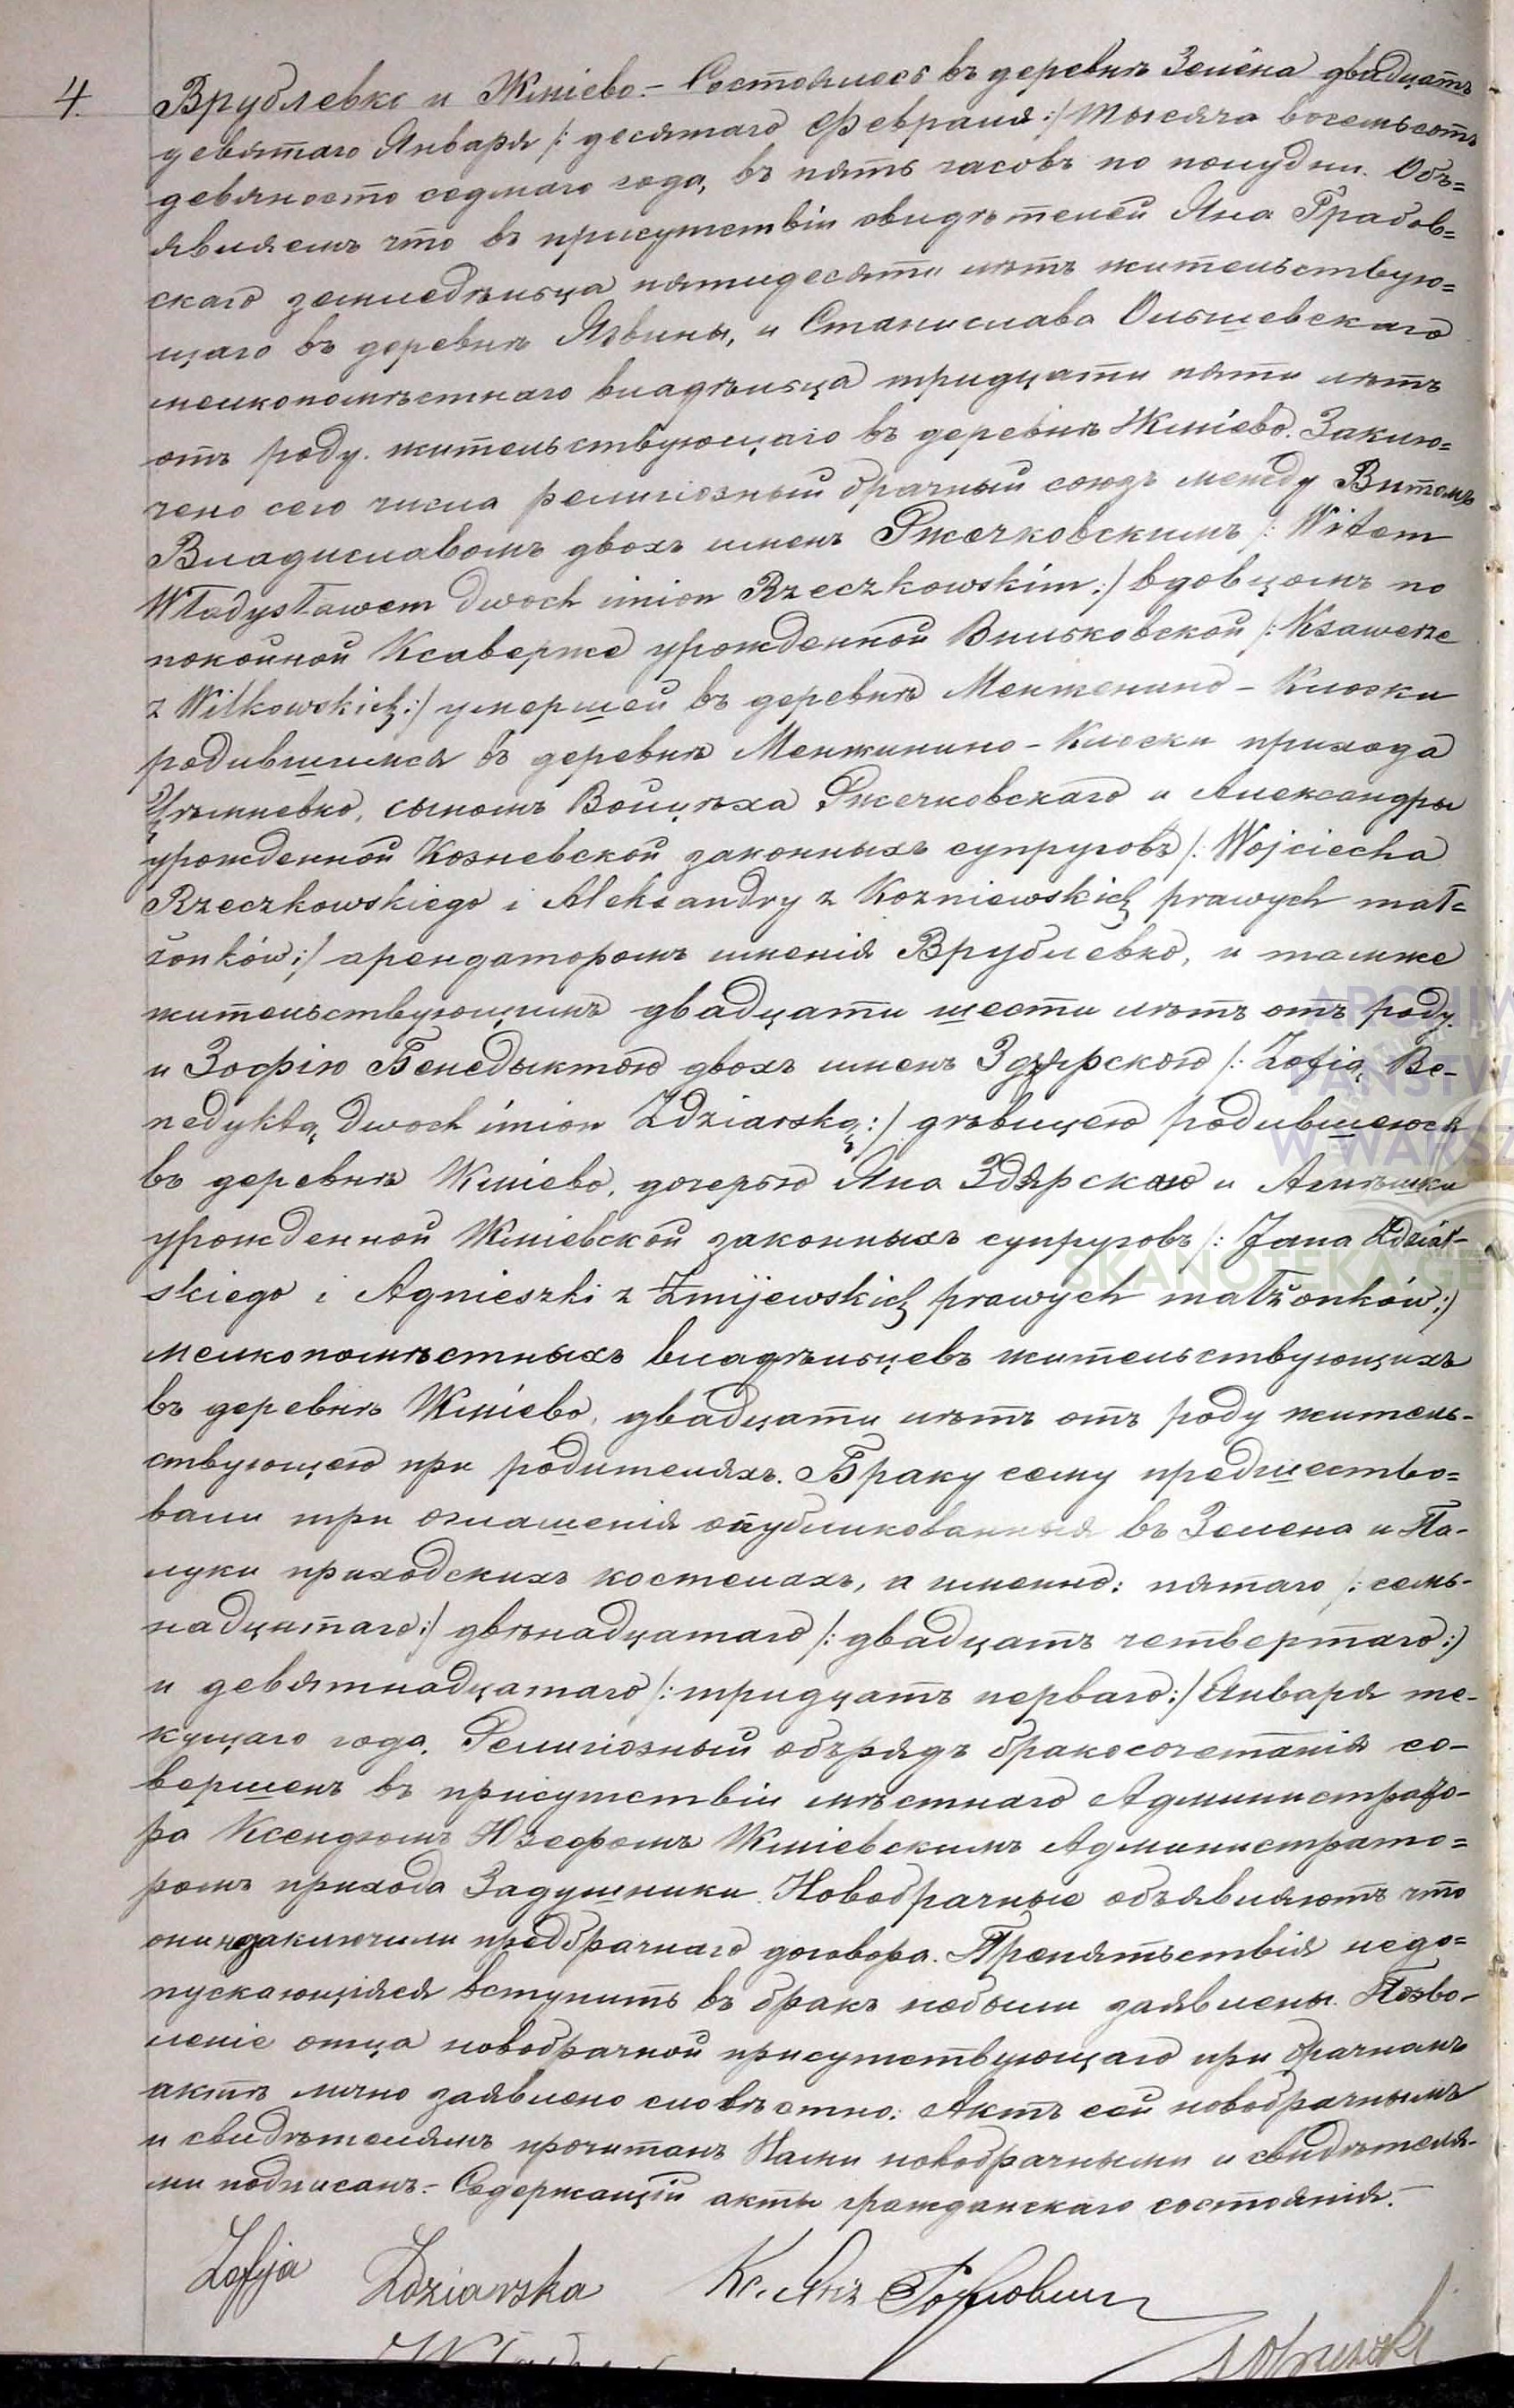 4.
Врублевко и Жміево.- Состоялось въ деревнѣ Зелёна двадцать
девятаго Января /: десятаго Февраля :/ тысяча восемьсотъ
девяносто седмаго года, въ пять часовъ по полудни. Объ=
являемъ что въ присутствіи свидѣтелей Яна Грабов=
скаго земледѣльца пятидесяти лѣтъ жительствую=
щаго въ деревнѣ Язвины, и Станислава Ольшевскаго
мелкопомѣстнаго владѣльца тридцати пяти лѣтъ
отъ роду. жительствующаго въ деревнѣ Жміево. Заклю=
чено сего числа религіозный брачный союзъ между Витомъ
Владиславомъ двохъ именъ Ржечковскимъ /: Witem
Władysławem dwoch imion Rzeczkowskim :/ вдовцомъ по
покойной Ксаверже урожденной Вильковской /: Ksawerze
z Wilkowskich :/ умершей въ деревнѣ Менженино - Клоски
родившимся въ деревнѣ Менжинино - Клоски прихода
Цѣмневко, сыномъ Войцѣха Ржечковскаго и Александры
урожденной Козневской законныхъ супруговъ /: Wojciecha
Rzeczkowskiego i Aleksandry z Kozniewskich prawych mał=
żonków :/ арендаторомъ имения Врублевко, и тамже
жительствующимъ двадцати шести лѣтъ отъ роду.
и Зофію Бенедыктою двохъ именъ Здзярскою /: Zofią Be-
nedyktą dwoch imion Zdziarską :/ дѣвицею родившеюся
въ деревнѣ Жміево, дочерью Яна Здярскаго и Агнѣшки
урожденной Жміевской законныхъ супруговъ /: Jana Zdziar-
skiego i Agnieszki z Żmijewskich prawych małżonków :/
мелкопомѣстныхъ владѣльцевъ жительствующихъ
въ деревнѣ Жміево, двадцати лѣтъ отъ роду житель-
ствующею при родителяхъ. Браку сему предшество=
вали три оглашенія опубликованныя въ Зелена и Па-
луки приходскихъ костелахъ, а именно: пятаго /: семь-
надцатаго :/ двѣнадцатаго /: двадцать четвертаго :/
и девятнадцатаго /: тридцать перваго :/ Января те-
кущаго года. Религіозный обърядъ бракосочетанія со-
вершенъ въ присутствіи мѣстнаго Администрато-
ра Ксендзомъ Юзефомъ Жміевскимъ Администрато=
ромъ прихода Задушники. Новобрачные объявляютъ что
они незаключили предбрачнаго договора. Препятьствія недо=
пускающіяся вступить въ бракъ небыли заявлены. Позво-
леніе отца новобрачной присутствующаго при брачномъ
актѣ лично заявлено словѣстно. Актъ сей новобрачнымъ
и свидѣтелямъ прочитанъ Нами новобрачными и свидѣтеля-
ми подписанъ.- Содержащій акты гражданскаго состоянія.-
Zofija Zdziarska Кс. Янъ